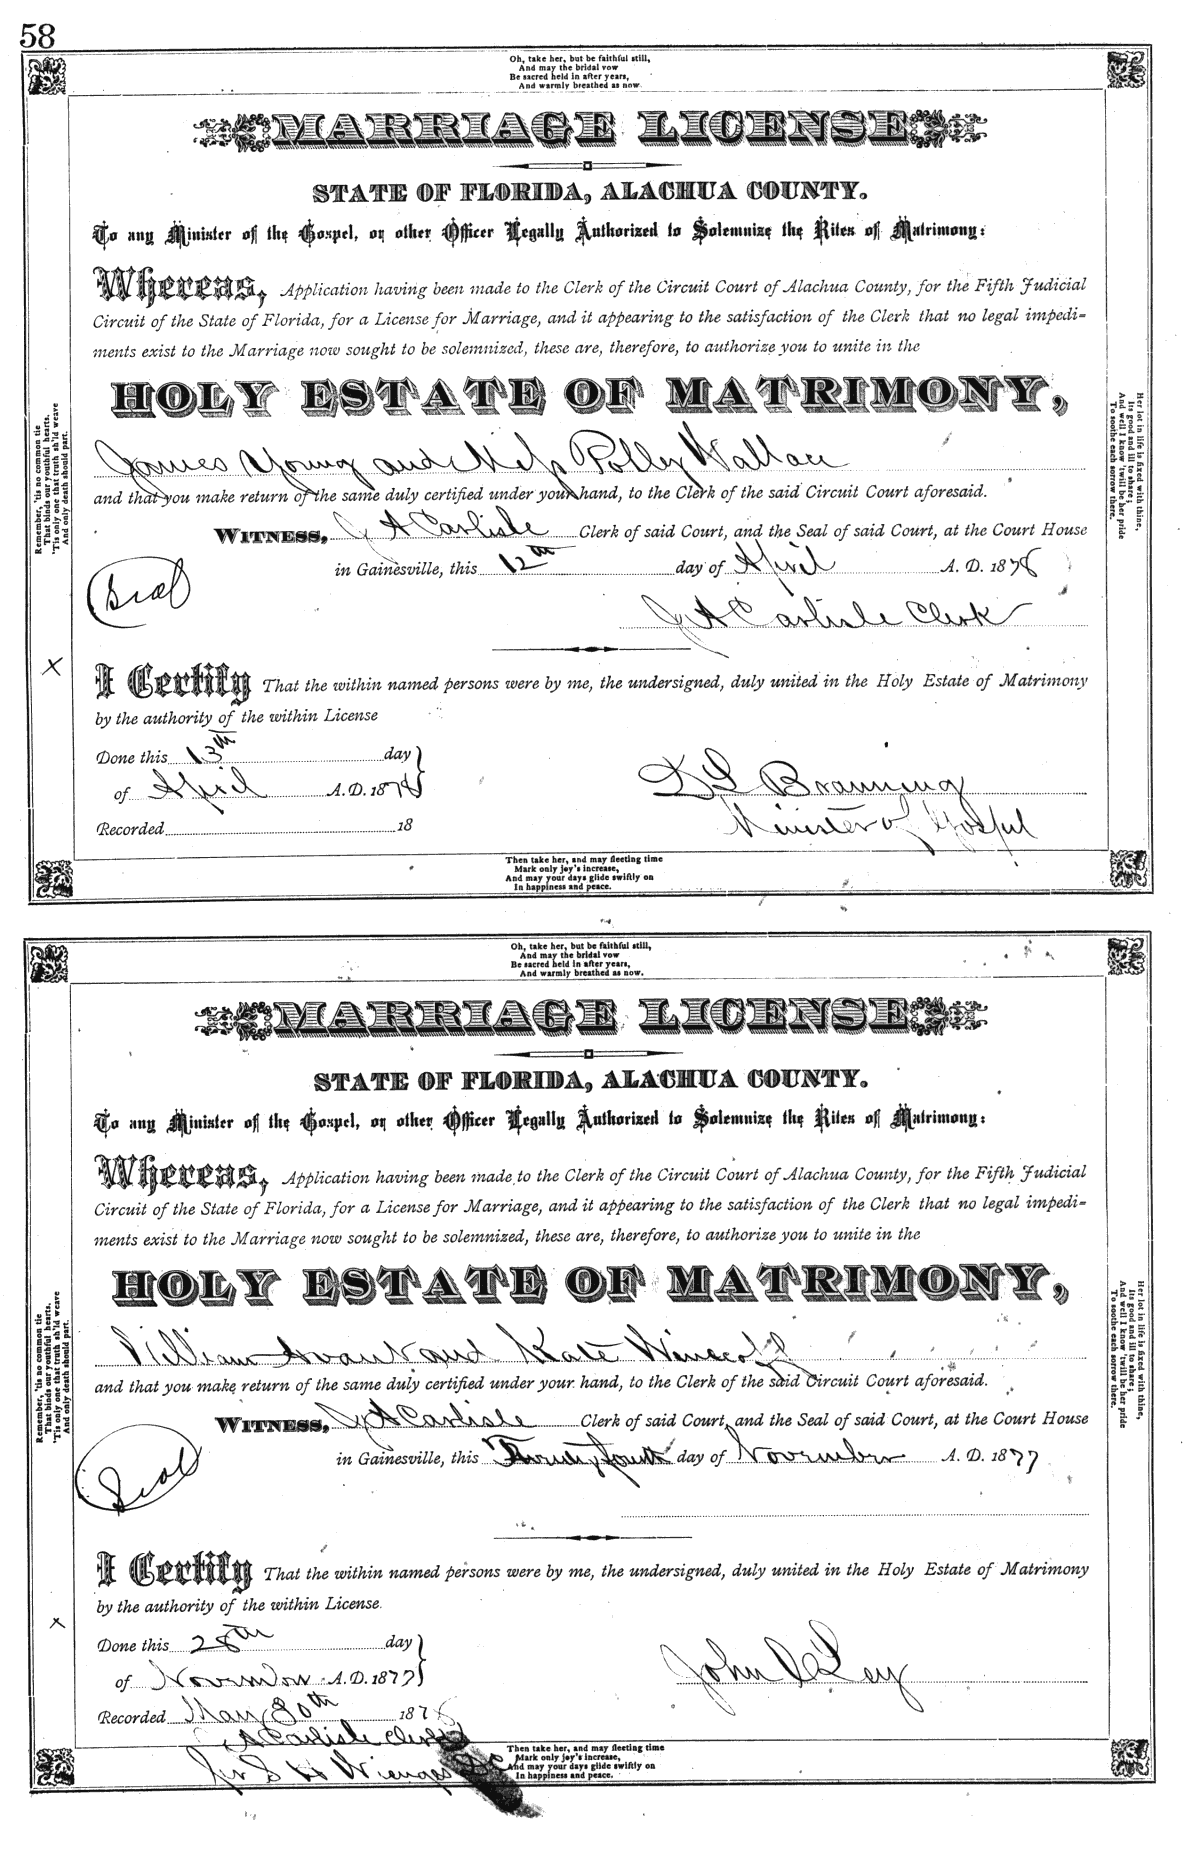 58
Oh, take her, but be faithful still,
And may the bridal vow
Be sacred held in after years,
And warmly breathed as now.
MARRIAGE LICENSE
STATE OF FLORIDA, ALACHUA COUNTY.
To any Minister of the Gospel, or other Officer Legally Authorized to Solemnize the Rites of Matrimony:
Whereas, Application having been made to the Clerk of the Circuit Court of Alachua County, for the Fifth Judicial
Circuit of the State of Florida, for a License for Marriage, and it appearing to the satisfaction of the Clerk that no legal impedi-
ments exist to the Marriage now sought to be solemnized, these are, therefore, to authorize you to unite in the
HOLY ESTATE OF MATRIMONY,
James Young and Miss Polly Wallace
and that you make return of the same duly certified under your hand, to the Clerk of the said Circuit Court aforesaid.
WITNESS, J A Carlisle Clerk of said Court, and the Seal of said Court, at the Court House
in Gainesville, this 12th day of April A. D. 1878
Seal
J A Carlisle Clerk
X
I Certify That the within named persons were by me, the undersigned, duly united in the Holy Estate of Matrimony
by the authority of the within License
Done this 13th day
of April A.D. 1878
D L Branning
Minister of Gospel
Recorded 18
Then take her, and may fleeting time
Mark only joy's increase,
And may your days glide swiftly on
In happiness and peace.
Remember, 'tis no common tie
That binds our youthful hearts,
'Tis only one that truth sh'ld weave
And only death should part.
Her lot in life is fixed with thine,
Its good and ill to share;
And well I know 'twill be her pride
To soothe each sorrow there.
Oh, take her, but be faithful still,
And may the bridal vow
Be sacred held in after years,
And warmly breathed as now.
MARRIAGE LICENSE
STATE OF FLORIDA, ALACHUA COUNTY.
To any Minister of the Gospel, or other Officer Legally Authorized to Solemnize the Rites of Matrimony:
Whereas, Application having been made to the Clerk of the Circuit Court of Alachua County, for the Fifth Judicial
Circuit of the State of Florida, for a License for Marriage, and it appearing to the satisfaction of the Clerk that no legal impedi-
ments exist to the Marriage now sought to be solemnized, these are, therefore, to authorize you to unite in the
HOLY ESTATE OF MATRIMONY,
William Avant and Kate Winecoff
and that you make return of the same duly certified under your hand, to the Clerk of the said Circuit Court aforesaid.
WITNESS, J A Carlisle Clerk of said Court, and the Seal of said Court, at the Court House
in Gainesville, this fourth day of November A. D. 1877
Seal
I Certify That the within named persons were by me, the undersigned, duly united in the Holy Estate of Matrimony
by the authority of the within License.
x
Done this 28th day
of November A.D. 1877
John C Ley
Recorded May 30th 1878
J A Carlisle Clerk
S H Wienges DC
Then take her, and may fleeting time
Mark only joy's increase,
And may your days glide swiftly on
In happiness and peace.
Remember, 'tis no common tie
That binds our youthful hearts,
'Tis only one that truth sh'ld weave
And only death should part.
Her lot in life is fixed with thine,
Its good and ill to share;
And well I know 'twill be her pride
To soothe each sorrow there.